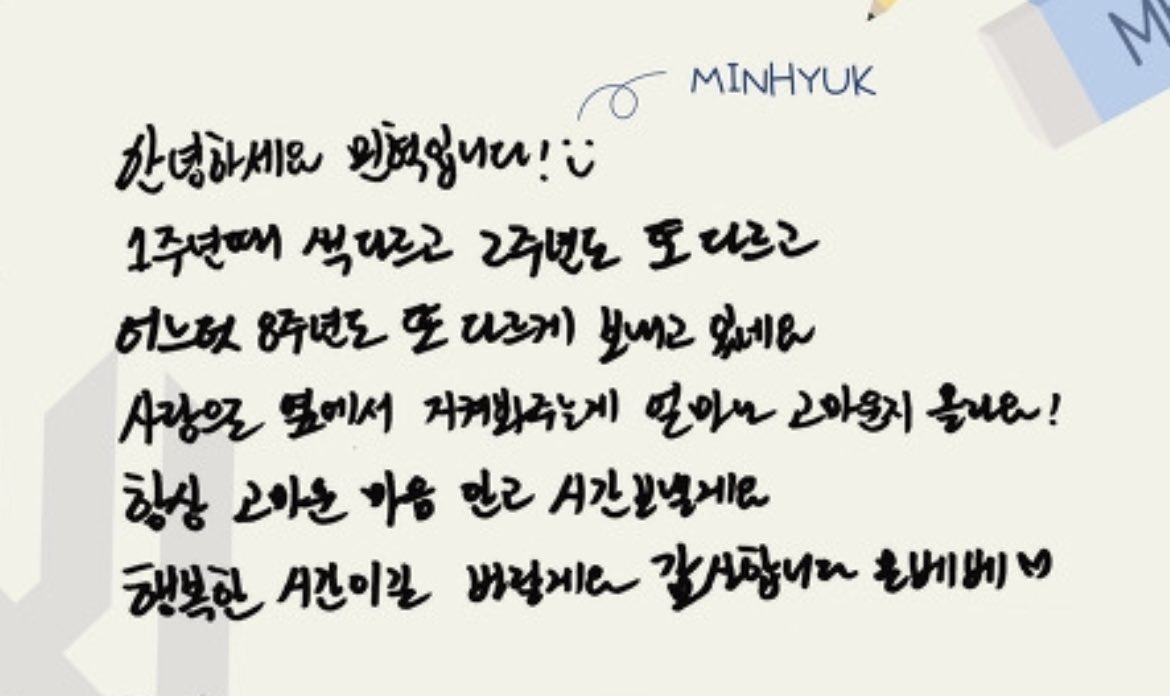 MINHYUK
안녕하세요 민혁입니다! :)
1주년때 색다르고 2주년도 또 다르고
어느덧 8주년도 또 다르게 보내고 있네요
사랑으로 옆에서 지켜봐주는게 얼마나 고마운지 몰라요!
항상 고마운 마음 안고 시간보낼게요
행복한 시간이길 바랄게요 감사합니다 몬베베